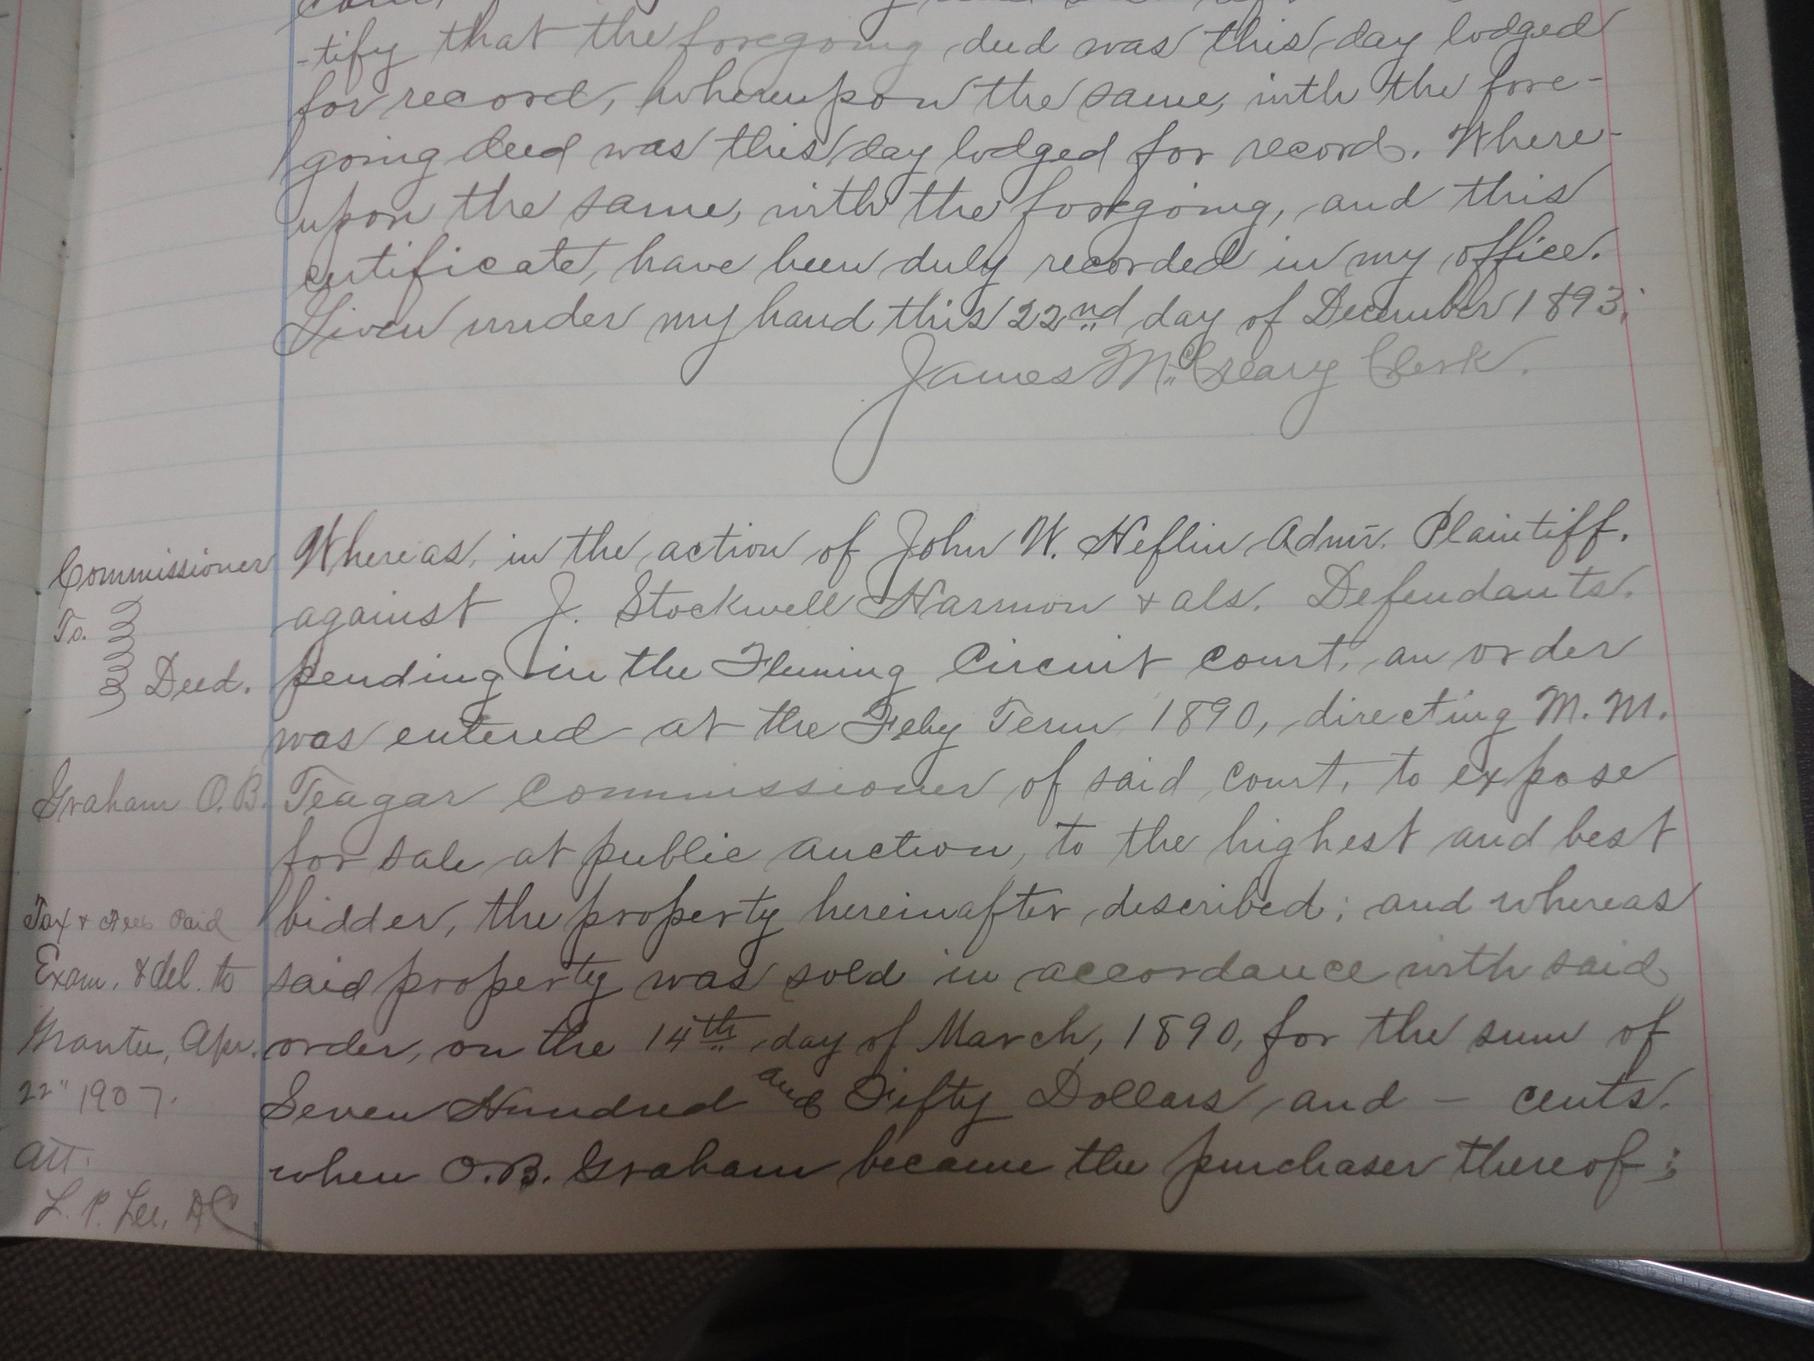 -tify that the foregoing deed was this day lodged
for record, whereupon the same, with the fore-
going deed was this day lodged for record. Where-
upon the same, with the foregoing, and this
certificate, have been duly recorded in my office.
Given under my hand this 22nd day of December 1893.
James McCleary Clerk.
Commissioner
To.
Deed.
Graham O.B.
Tax & Fees Paid
Exam. & del. to
Grantee, Apr.
22" 1907.
Att.
L. P. Lee, DC
Whereas, in the action of John W. Heflin Admr. Plaintiff.
against J. Stockwell Harmon & als. Defendants.
pending in the Fleming Circuit court, an order
was entered at the Feby Term 1890, directing M. M.
Teagar Commissioner of said court, to expose
for sale at public auction, to the highest and best
bidder, the property hereinafter described; and whereas
said property was sold in accordance with said
order, on the 14th day of March, 1890, for the sum of
Seven Hundred and Fifty Dollars and – cents.
when O.B. Graham became the purchaser thereof;